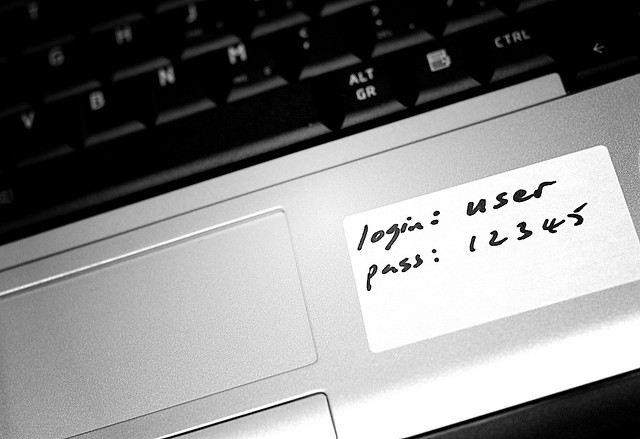 T
G H J
V B N M
ALT GR
CTRL
←
login: user
pass: 12345